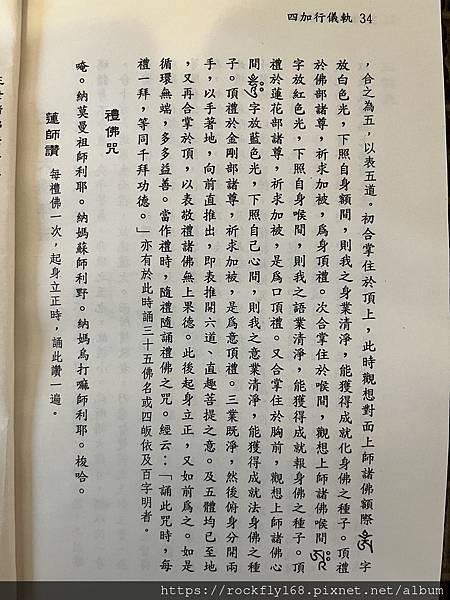 四加行儀軌 34
，合之為五，以表五道。初合掌住於頂上，此時觀想對面上師諸佛額際ༀ字
放白色光，下照自身額間，則我之身業清淨，能獲得成就化身佛之種子。頂禮
於佛部諸尊，祈求加被，為身頂禮。次合掌住於喉間，觀想上師諸佛喉間ཨཱཿ
字放紅色光，下照自身喉間，則我之語業清淨，能獲得成就報身佛之種子。頂
禮於蓮花部諸尊，祈求加被，是為口頂禮。又合掌住於胸前，觀想上師諸佛心
間ཧཱུྃ字放藍色光，下照自己心間，則我之意業清淨，能獲得成就法身佛之種
子。頂禮於金剛部諸尊，祈求加被，是為意頂禮。三業既淨，然後俯身分開兩
手，以手著地，向前直推出，即表推開六道、直趣菩提之意。及五體均已至地
，又再合掌於頂，以表敬禮諸佛無上果德。此後起身立正，又如前為之。如是
循環無端，多多益善。當作禮時，隨禮隨誦禮佛之咒。經云：「誦此咒時，每
禮一拜，等同千拜功德。」亦有於此時誦三十五佛名或四皈依及百字明者。
禮佛咒
唵。納莫曼祖師利耶。納媽蘇師利野。納媽烏打嘛師利耶。梭哈。
蓮師讚 每禮佛一次，起身立正時，誦此讚一遍。
https://rockfly168.pixnet.net/album